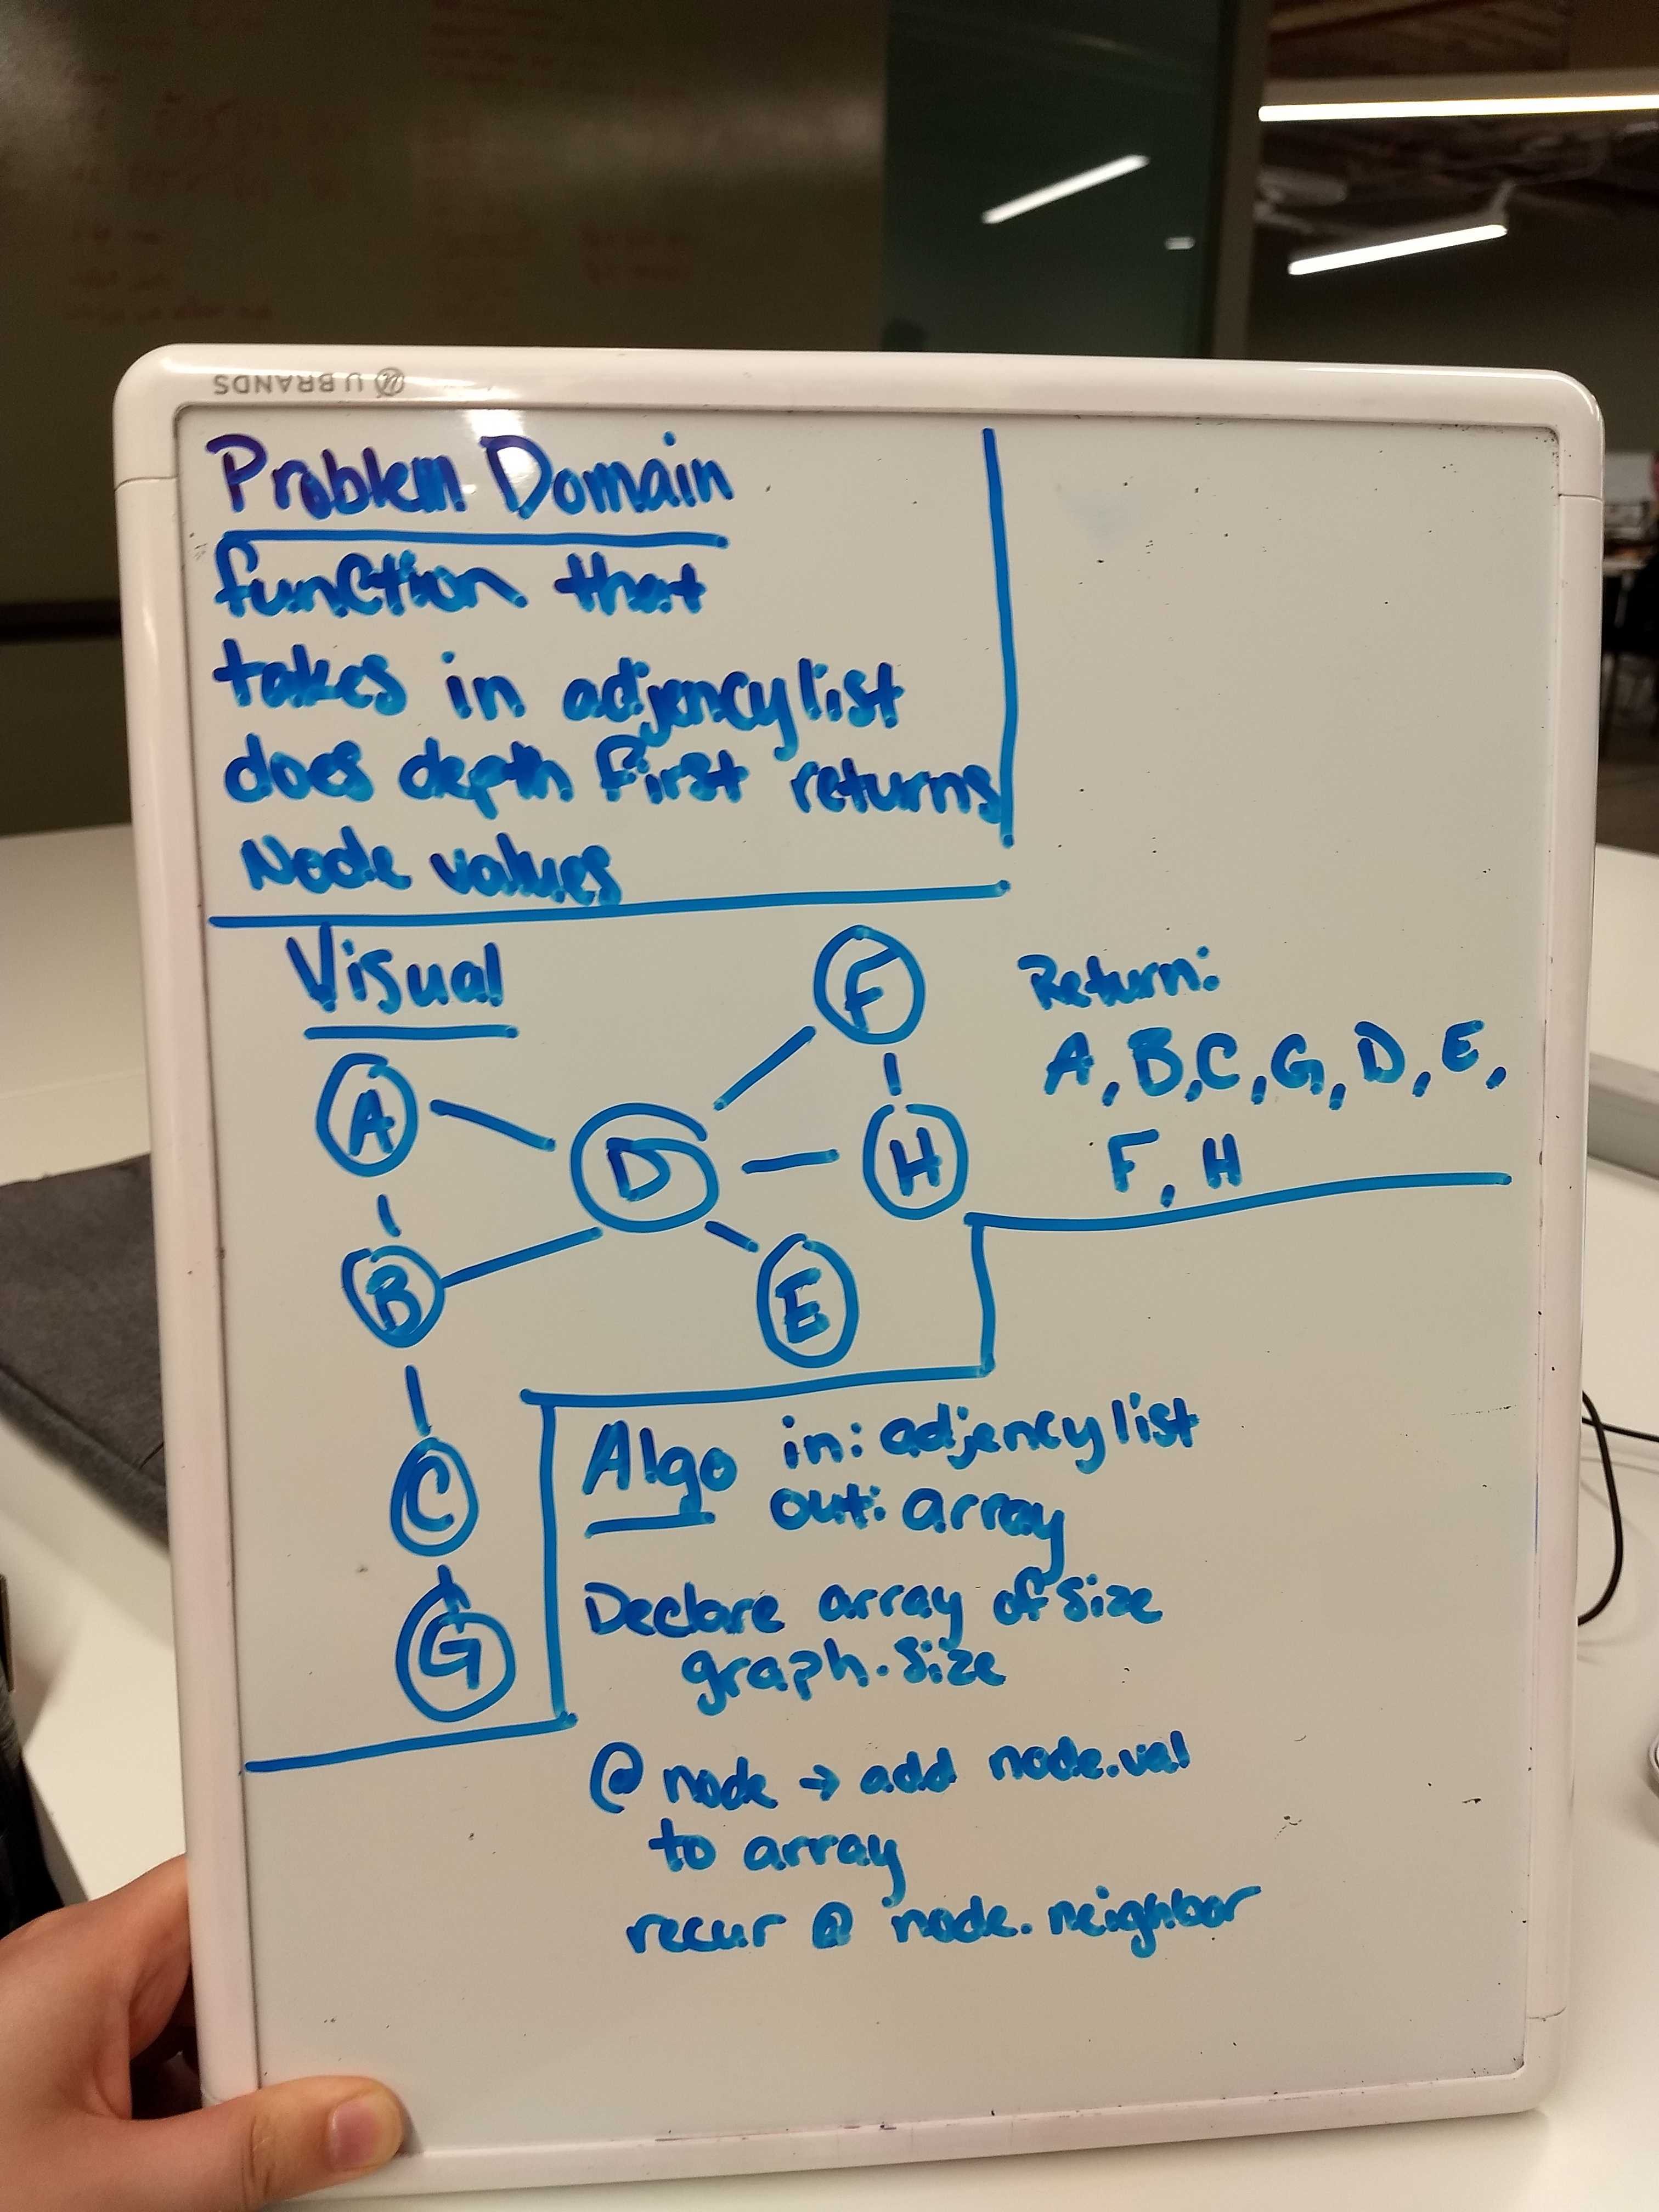 U BRANDS
Problem Domain
function that
takes in adjency list
does depth first returns
Node values
Visual
F
A
D
H
B
E
C
G
Return:
A, B, C, G, D, E,
F, H
Algo in: adjency list
out: array
Declare array of size
graph.size
@ node → add node.val
to array
recur @ node.neighbor